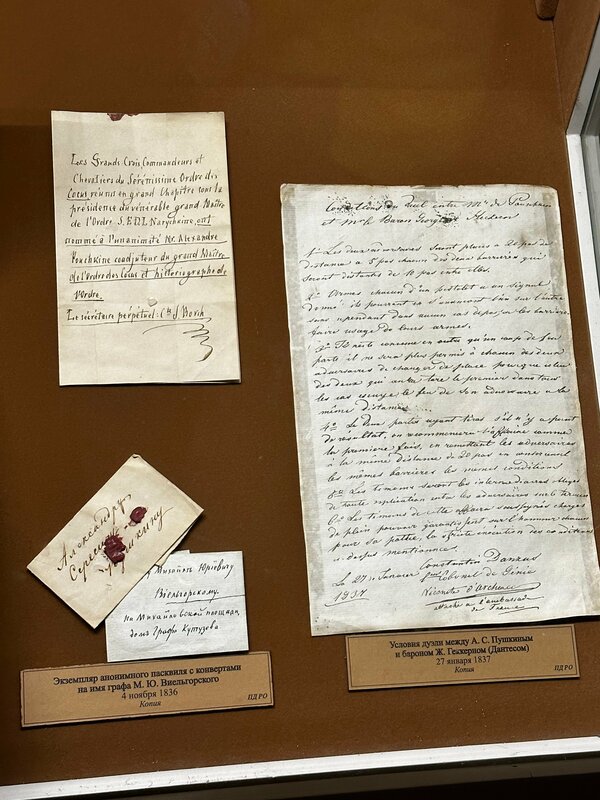 Les Grands Croix Commandeurs et
Chevaliers du Sérénissime Ordre des
Cocus réunis en grand Chapitre sous la
présidence du vénérable grand Maître
de l'Ordre S.E.D.L. Narychkine, ont
nommé à l'unanimité Mr. Alexandre
Pouchkine coadjuteur du grand Maître
de l'Ordre des Cocus et historiographe de
l'Ordre.
Le sécrétaire perpétuel: Cte J. Borch
Александру
Сергеичу
Пушкину
Михайлѣ Юрiевичу
Вiельгорскому.
на Михайловской площади,
домъ Графа Кутузова
Экземпляр анонимного пасквиля с конвертами
на имя графа М. Ю. Виельгорского
4 ноября 1836
Копия
ПД РО
Conditions du Duel entre Mr. de Pouschkin
et Mr. le Baron Georges Heckeren
1º Les deux adversaires seront placés à 20 pas de
distance à 5 pas chacun des deux barrières qui
seront distantes de 10 pas entre elles.
2º Armés chacun d'un pistolet à un signal
donné ils pourront en s'avançant l'un sur l'autre
sans cependant dans aucun cas dépasser les barrières
faire usage de leurs armes.
3º Il reste convenu en outre qu'un coup de feu
parti il ne sera plus permis à chacun des deux
adversaires de changer de place pour que celui
des deux qui aura tiré le premier dans tous
les cas essuye le feu de son adversaire à la
même distance.
4º Les deux parties ayant tiré s'il n'y a point
de résultat, on recommencera l'affaire comme
la première fois, en remettant les adversaires
à la même distance de 20 pas en conservant
les mêmes barrières les mêmes conditions
5º Les témoins seront les intermédiaires obligés
de toute explication entre les adversaires sur le terrain
6º Les témoins de cette affaire soussignés chargés
de plein pouvoir garantissent sur l'honneur chacun
pour sa partie, la stricte exécution des conditions
ci-dessus mentionnées.
Constantin Danzas
Le 27 Janvier
1837
Lieut Colonel du Génie
Vicomte d'Archiac
attaché à l'ambassade
de France
Условия дуэли между А. С. Пушкиным
и бароном Ж. Геккерном (Дантесом)
27 января 1837
Копия
ПД РО